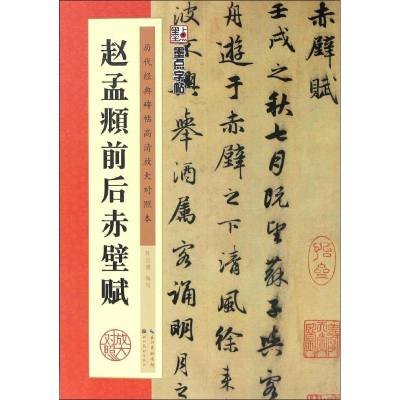 赵孟頫前后赤壁赋
历代经典碑帖高清放大对照本
墨点字帖
放大
对照
赤壁赋
壬戌之秋七月既望苏子与客
舟游于赤壁之下清风徐来
波不兴举酒属客诵明月之